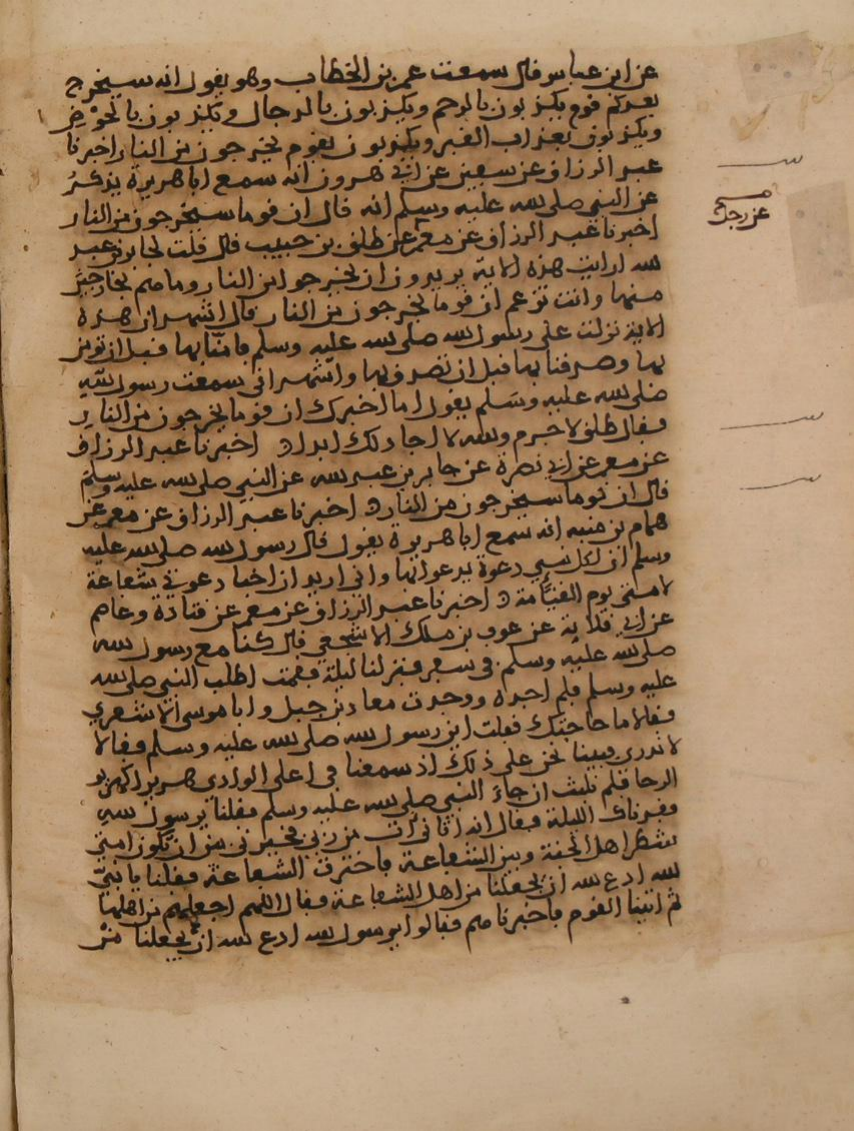 عن ابن عباس قال سمعت عمر بن الخطاب وهو يقول انه سيخرج
بعدكم قوم يكذبون بالرجم ويكذبون بالدجال ويكذبون بالحوض
ويكذبون بعذاب القبر ويكذبون بقوم يخرجون من النار اخبرنا
عبد الرزاق عن سفين عن ابي هرون انه سمع ابا هريرة يذكر
عن النبي صلى الله عليه وسلم انه قال ان قوما سيخرجون من النار
اخبرنا عبد الرزاق عن معمر عن طلق بن حبيب قال قلت لجابر بن عبد
الله ارايت هذه الاية يريدون ان يخرجوا من النار وما هم بخارجين
منها وانت تزعم ان قوما يخرجون من النار قال اشهد ان هذه
الاية نزلت على رسول الله صلى الله عليه وسلم فامنا بها قبل ان تومن
بها وصدقنا بها قبل ان تصدق بها واشهد اني سمعت رسول الله
صلى الله عليه وسلم يقول اما اخبرك ان قوما يخرجون من النار
فقال طلق لا جرم والله لا اجادلك ابدا اخبرنا عبد الرزاق
عن معمر عن ابي نضرة عن جابر بن عبد الله عن النبي صلى الله عليه وسلم
قال ان قوما سيخرجون من النار اخبرنا عبد الرزاق عن معمر عن
همام بن منبه انه سمع ابا هريرة يقول قال رسول الله صلى الله عليه
وسلم ان لكل نبي دعوة يدعوا بها واني اريد ان اخبا دعوتي شفاعة
لامتي يوم القيامة اخبرنا عبد الرزاق عن معمر عن قتادة وعاصم
عن ابي قلابة عن عوف بن ملك الاشجعي قال كنا مع رسول الله
صلى الله عليه وسلم في سفر فنزلنا ليلة فقمت اطلب النبي صلى الله
عليه وسلم فلم اجده ووجدت معاذ بن جبل وابا موسى الاشعري
فقالا ما حاجتك فقلت اين رسول الله صلى الله عليه وسلم فقالا
لا ندري فبينا نحن على ذلك اذ سمعنا في اعلى الوادي هديرا كهدير
الرحا فلم نلبث ان جاء النبي صلى الله عليه وسلم فقلنا يرسول الله
فقدناك الليلة فقال انه اتاني ات من ربي فخيرني بين ان يكون امتي
شطر اهل الجنة وبين الشفاعة فاخترت الشفاعة فقلنا يا نبي
الله ادع الله ان يجعلنا من اهل الشفاعة فقال اللهم اجعلهم من اهلها
ثم اتينا القوم فاخبرناهم فقالوا يرسول الله ادع الله ان يجعلنا من
عن رجل